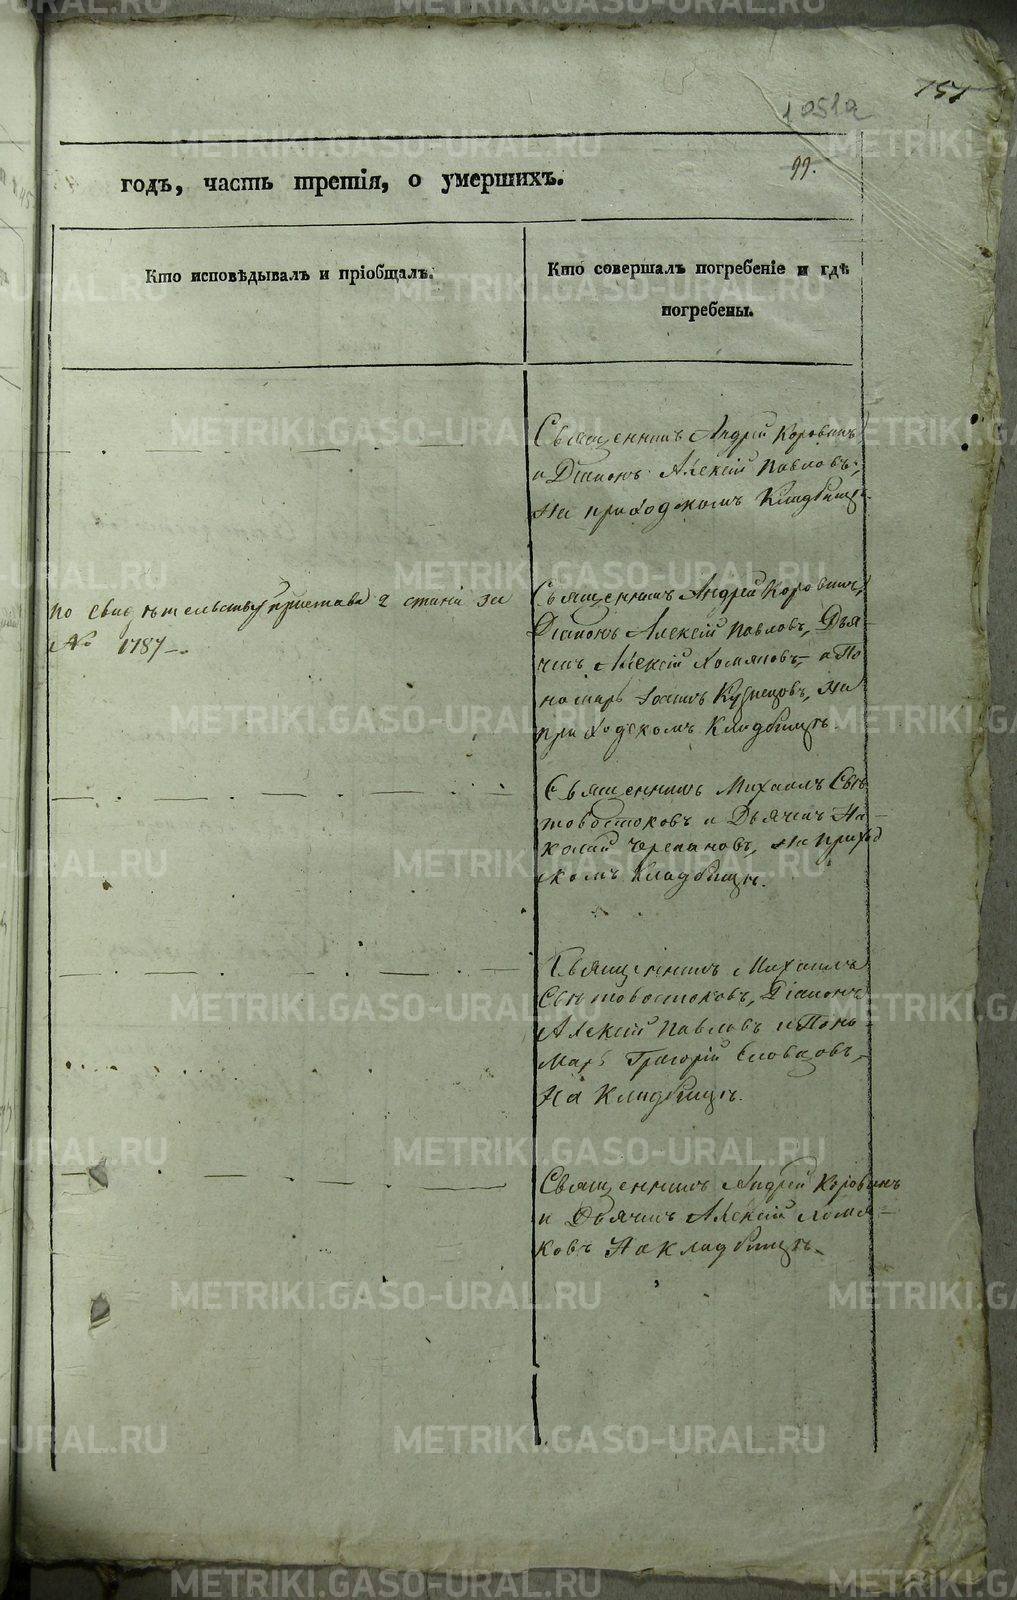 151
1051а
99.
годъ, часть третія, о умершихъ.
Кто исповѣдывалъ и пріобщалъ.
Кто совершалъ погребеніе и гдѣ
погребены.
Священникъ Андрей Коровинъ
и Діаконъ Алексій Павловъ,
На приходскомъ Кладбищѣ.
По свидѣтельству пристава 2 стана за
№ 1787
Священникъ Андрей Коровинъ,
Діаконъ Алексій Павловъ, Дья-
чикъ Алексій Хомяковъ, и По
номарь Іоаннъ Кузнецовъ, На
приходскомъ Кладбищѣ.
Священникъ Михаилъ Свѣ
товостоковъ и Дьячикъ Ни-
колай Черепановъ, на приход
скомъ Кладбищѣ.
Священникъ Михаилъ
Свѣтовостоковъ, Діаконъ
Алексій Павловъ и Поно-
марь Григорій Словцовъ,
На Кладбищѣ.
Священникъ Андрей Коровинъ
и Дьячикъ Алексій Хомя-
ковъ На Кладбищѣ.
METRIKI.GASO-URAL.RU